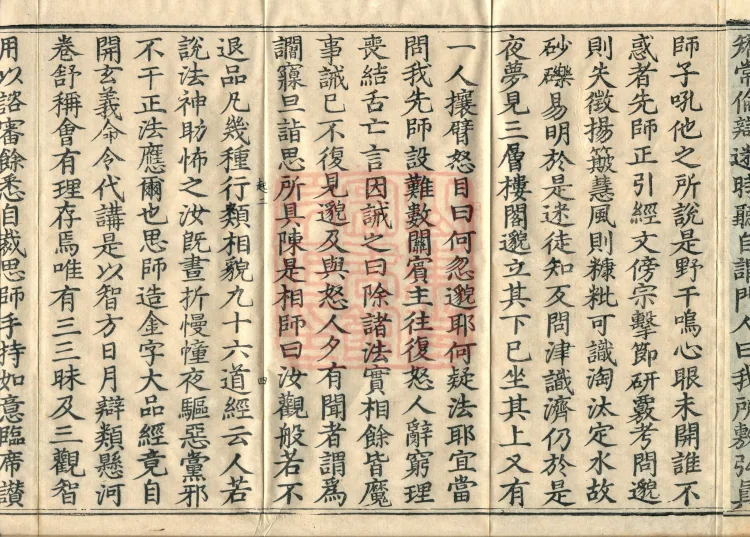 師子吼他之所說是野干鳴心眼未開誰不
惑者先師正引經文傍宗擊節研覈考問邈
則失徵揚簸慧風則糠粃可識淘汰定水故
砂礫易明於是迷徒知反問津識濟仍於是
夜夢見三層樓閣邈立其下己坐其上又有
一人攘臂怒目曰何忽邈耶何疑法耶宜當
問我先師設難數關賓主往復怒人辭窮理
喪結舌亡言因誡之曰除諸法實相餘皆魔
事誡已不復見邈及與怒人夕有聞者謂為
讇寱旦詣思所具陳是相師曰汝觀般若不
退品凡幾種行類相貌九十六道經云人若
說法神助怖之汝既晝折慢幢夜驅惡黨邪
不干正法應爾也思師造金字大品經竟自
開玄義命令代講是以智方日月辯類懸河
卷舒稱會有理存焉唯有三三昧及三觀智
用以諮審餘悉自裁思師手持如意臨席讚